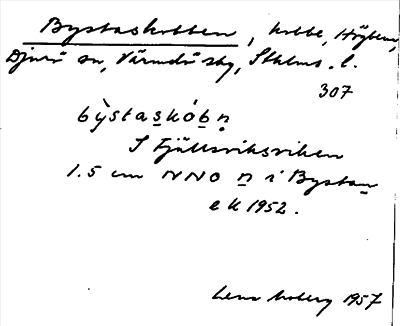 Bystaskobben, kobbe, Högbens,
Djurö sn, Värmdö sbg, Sthlms. l.
307
by̆staskób̥n
I Fjällsviksviken
1.5 cm NNO n i Bystan
ek 1952.
Lena Moberg 1957